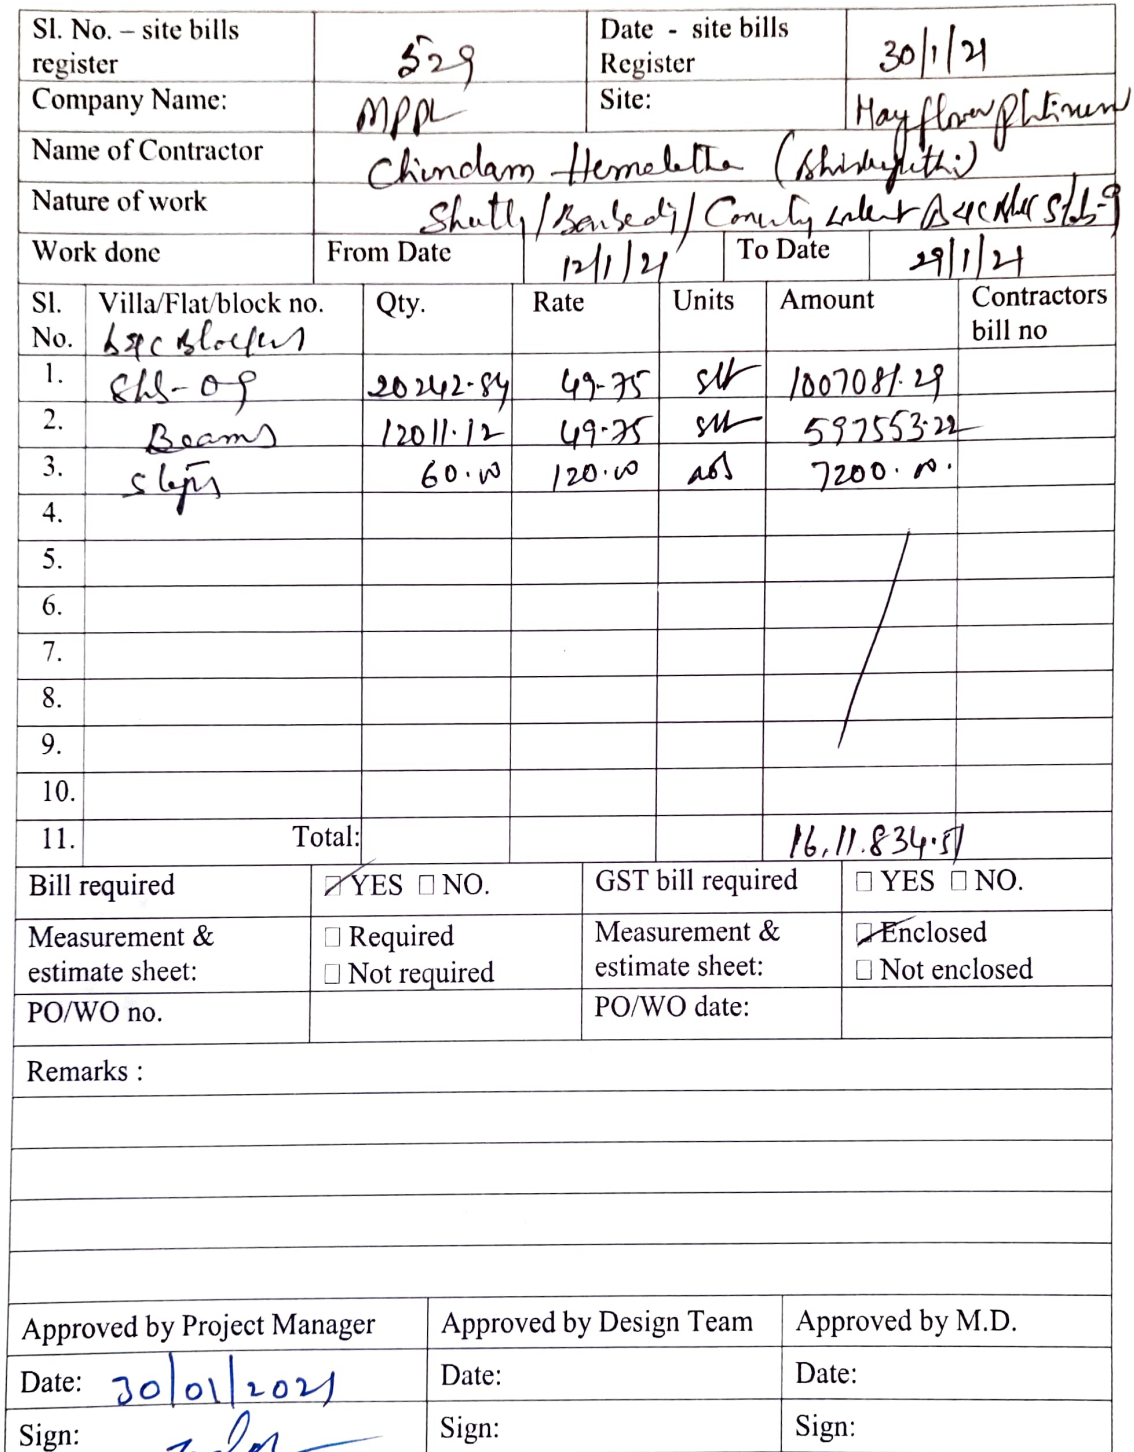 Sl. No. – site bills register 529 Date - site bills Register 30/1/21
Company Name: MPPL Site: Mayflower Platinum
Name of Contractor Chindam Hemalatha
Nature of work Slab-9
Work done From Date 12/1/21 To Date 29/1/21
Sl. No. Villa/Flat/block no. Qty. Rate Units Amount Contractors bill no
1. Slab-09 20242.84 49-75 sft 1007081.29
2. Beams 12011.12 49-75 sft 597553.22
3. Steps 60.00 120.00 nos 7200.00.
4.
5.
6.
7.
8.
9.
10.
11. Total: 16,11.834.51
Bill required YES NO. GST bill required YES NO.
Measurement & estimate sheet: Required Not required Measurement & estimate sheet: Enclosed Not enclosed
PO/WO no. PO/WO date:
Remarks :
Approved by Project Manager Approved by Design Team Approved by M.D.
Date: 30/01/2021 Date: Date:
Sign: Sign: Sign: